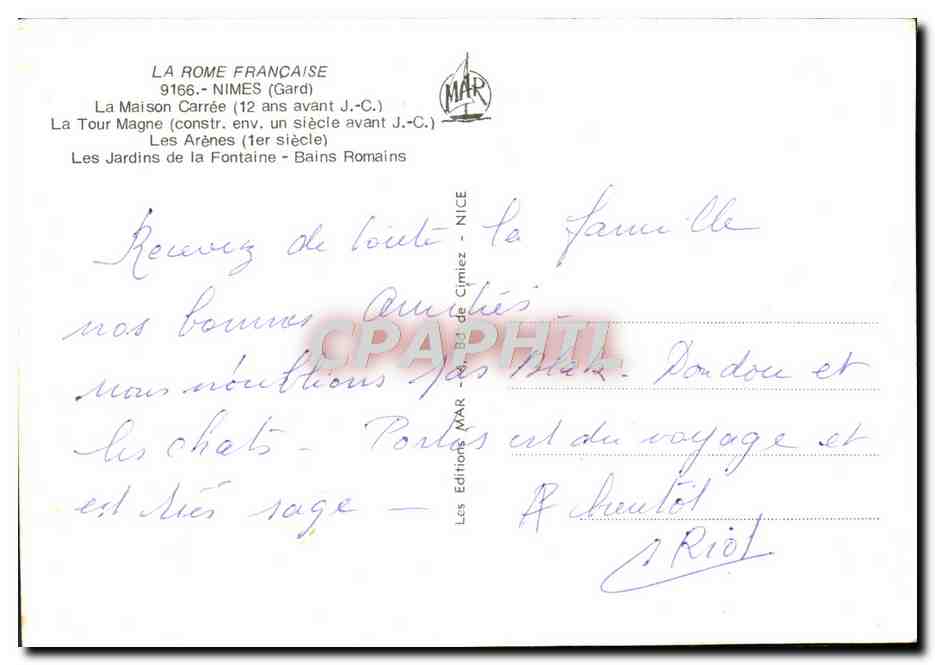 LA ROME FRANÇAISE
9166.- NIMES (Gard)
La Maison Carrée (12 ans avant J.-C.)
La Tour Magne (constr. env. un siècle avant J.-C.)
Les Arènes (1er siècle)
Les Jardins de la Fontaine - Bains Romains
MAR
Recevez de toute la famille
nos bonnes amitiés
nous n'oublions pas Doudou et
les chats - est du voyage et
est très sage - A bientôt
Riot
Les Editions MAR - Bd de Cimiez - NICE
CPAPHIL